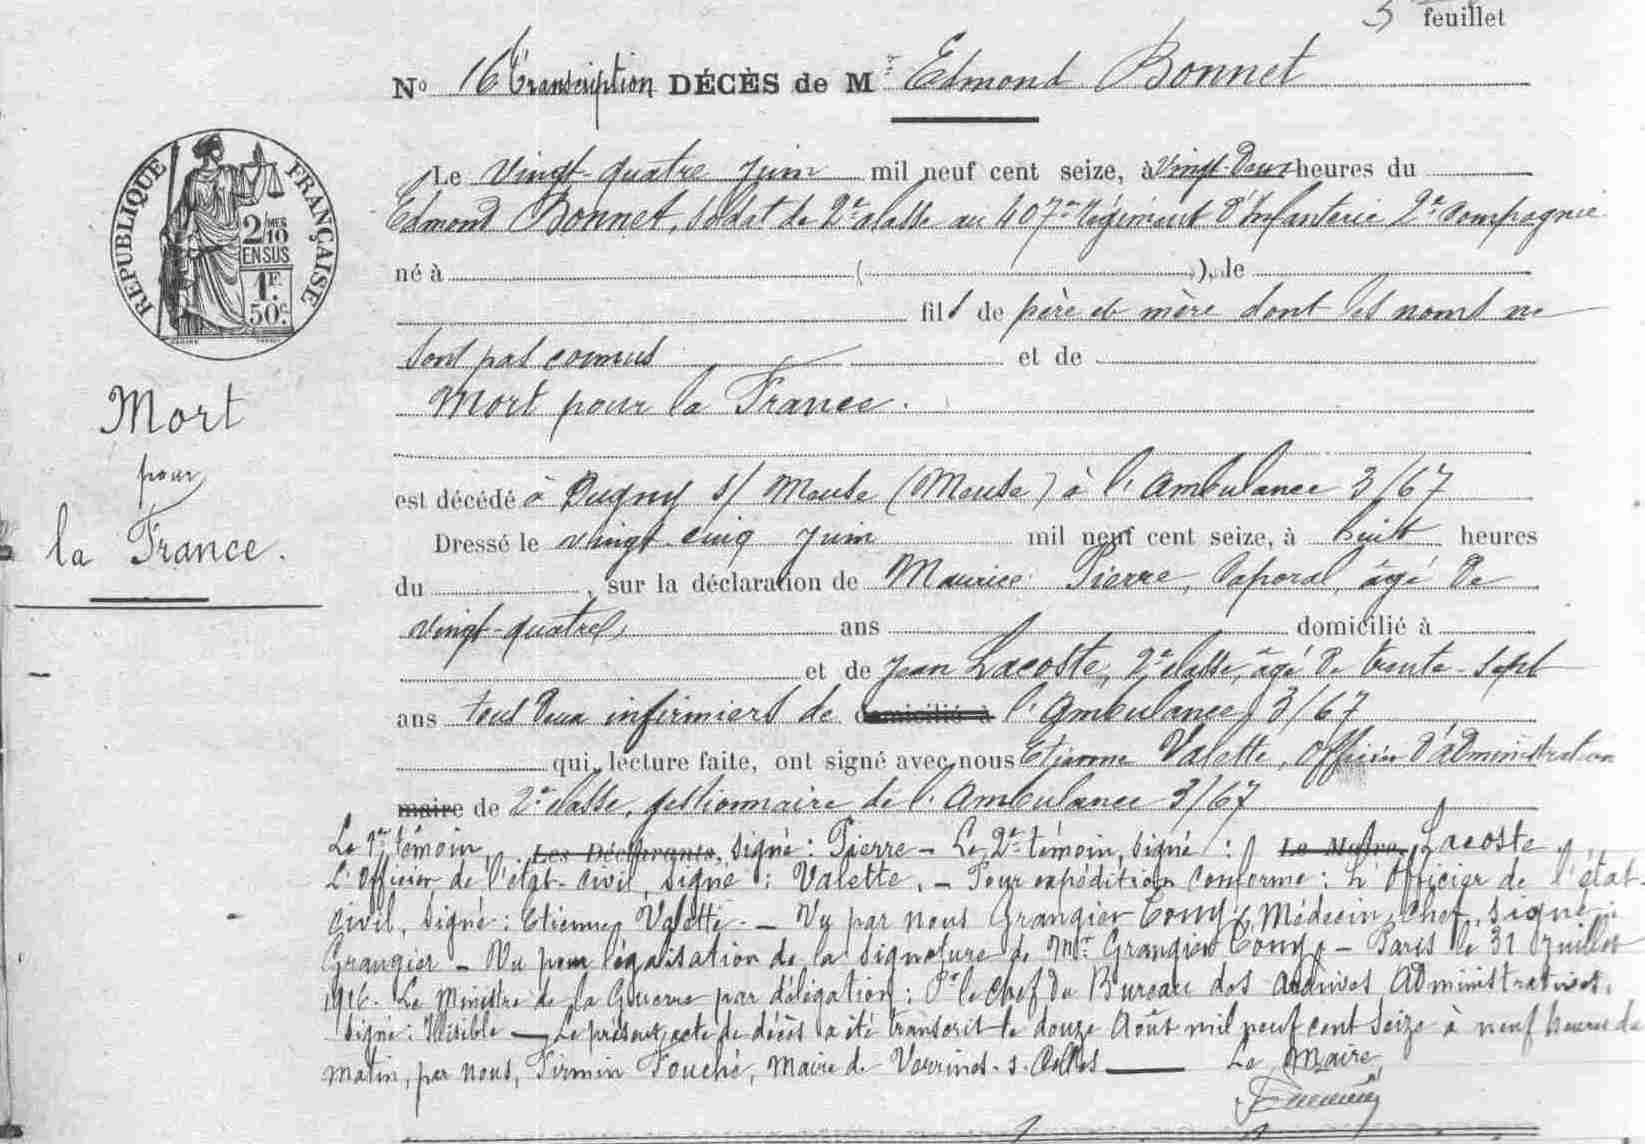 3e feuillet
No 16 Transcription DÉCÈS de Mr Edmond Bonnet
RÉPUBLIQUE FRANÇAISE
2/10 MES
EN SUS
1F.
50c.
Le vingt-quatre juin mil neuf cent seize, à vingt-deux heures du
Edmond Bonnet, soldat de 2e classe au 407e régiment d'Infanterie 2e Compagnie
né à ( ), le
fils de père et mère dont les noms ne
sont pas connus et de
Mort pour la France.
Mort
pour
la France.
est décédé à Dugny s/ Meuse (Meuse) à l'Ambulance 3/67
Dressé le vingt cinq juin mil neuf cent seize, à huit heures
du , sur la déclaration de Maurice Pierre, Caporal, âgé de
vingt-quatre, ans domicilié à
et de Jean Lacoste, 2e classe, âgé de trente-sept
ans tous deux infirmiers de domicilié à l'Ambulance 3/67
qui, lecture faite, ont signé avec nous Etienne Valette, Officier d'administration
maire de 2e classe, gestionnaire de l'Ambulance 3/67
Le 1er témoin, Les Déclarants, signé : Pierre — Le 2e témoin, signé : Le Maire, Lacoste
L'Officier de l'état-civil, signé : Valette. — Pour expédition conforme : L'Officier de l'état-
civil, signé : Etienne Valette. — Vu par nous Grangier Médecin-Chef, signé :
Grangier — Vu pour légalisation de la signature de Mr Grangier — Paris le 31 Juillet
1916. Le Ministre de la Guerre par délégation : Pr le Chef du Bureau des Archives Administratives.
signé : Illisible — Le présent acte de décès a été transcrit le douze Août mil neuf cent seize à neuf heures du
matin, par nous, Firmin Fouché, Maire de Verrines-s.-Celles — Le Maire,